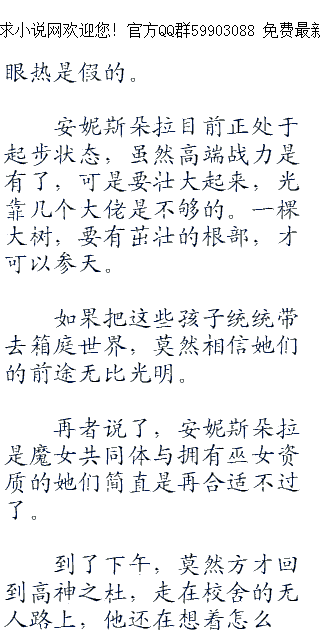 求小说网欢迎您！官方QQ群59903088 免费最新
眼热是假的。
安妮斯朵拉目前正处于
起步状态，虽然高端战力是
有了，可是要壮大起来，光
靠几个大佬是不够的。一棵
大树，要有茁壮的根部，才
可以参天。
如果把这些孩子统统带
去箱庭世界，莫然相信她们
的前途无比光明。
再者说了，安妮斯朵拉
是魔女共同体与拥有巫女资
质的她们简直是再合适不过
了。
到了下午，莫然方才回
到高神之杜，走在校舍的无
人路上，他还在想着怎么